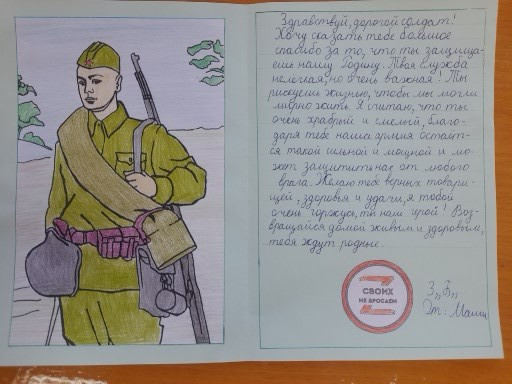 Здравствуй, дорогой солдат!
Хочу сказать тебе большое
спасибо за то, что ты защища-
ешь нашу Родину. Твоя служба
нелегкая, но очень важная! Ты
рискуешь жизнью, чтобы мы могли
мирно жить. Я считаю, что ты
очень храбрый и смелый, благо-
даря тебе наша армия остаёт-
ся такой сильной и мощной и мо-
жет защитить нас от любого
врага. Желаю тебе верных товари-
щей, здоровья и удачи, я тобой
очень горжусь, ты наш герой! Воз-
вращайся домой живым и здоровым,
тебя ждут родные.
СВОИХ
НЕ БРОСАЕМ
3 „Б„
От: Маши